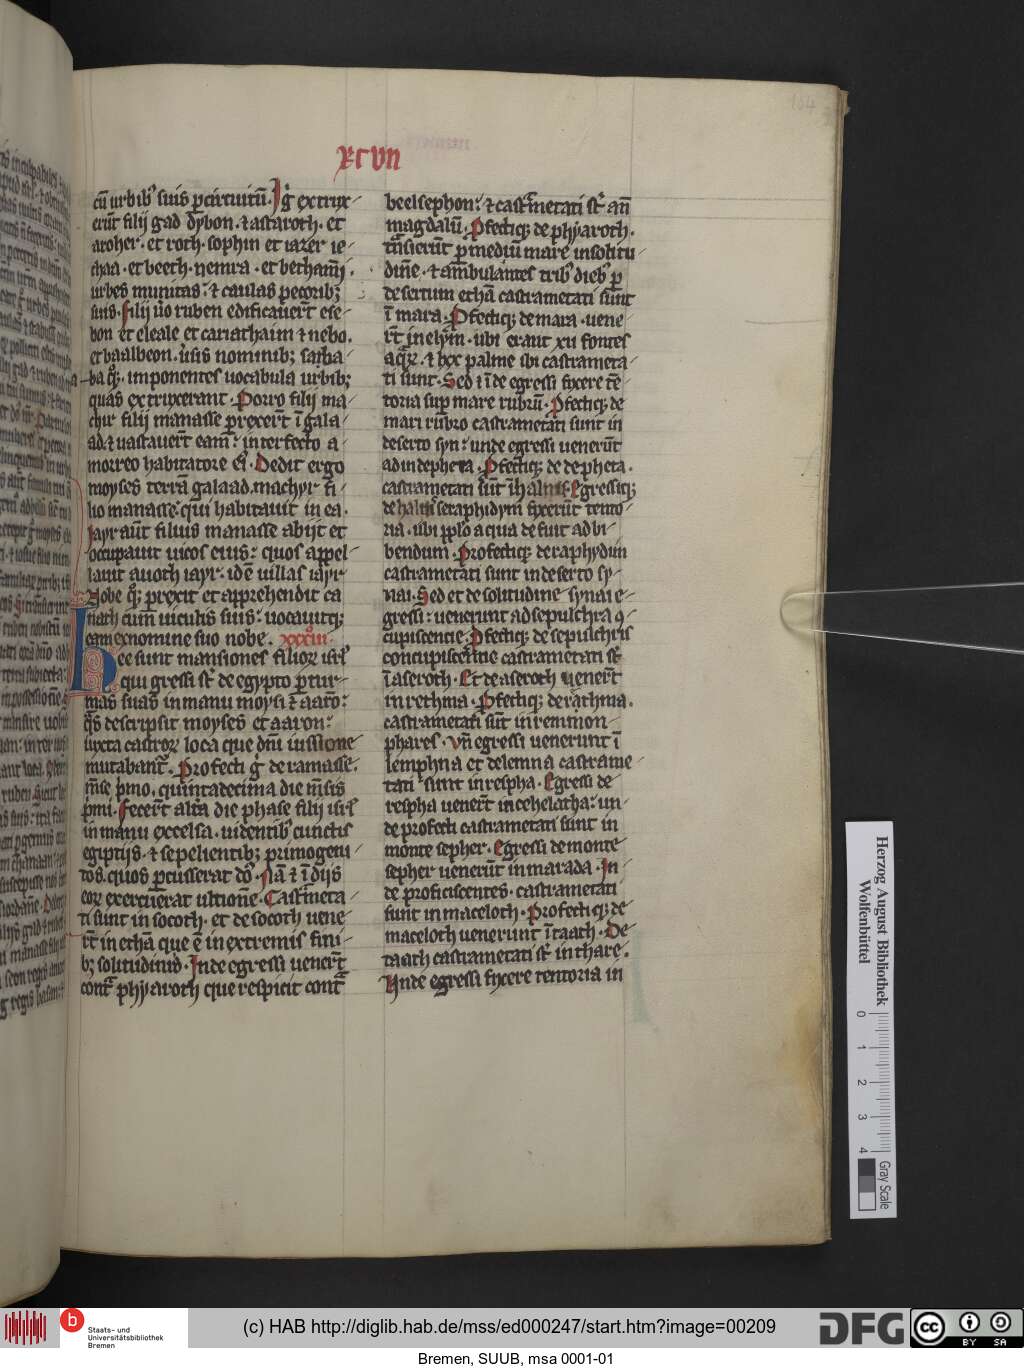 xcvii
cū urbibꝰ suis ꝑ circuitū. Igͥ extrux-
erūt filij gad dybon. ⁊ astaroth. et
aroher. et roth. sophin et iazer ie-
chaa. et beeth. nemra. et betharāj.
urbes munitas: ⁊ caulas pecoribꝫ
suis. Filij ūo ruben edificauer̄t ese-
bon et eleale et cariathaim ⁊ nebo.
et baalbeon. ūsis nominibꝫ saba-
ba qꝫ. imponentes uocabula urbibꝫ
quas extruxerant. Porro filij ma-
chir filij manasse perrexer̄t ī gala-
ad. ⁊ uastauer̄t eam: interfecto a-
morreo habitatore eiꝰ. Dedit ergo
moyses terrā galaad. machyr fi-
lio manasse. qui habitauit in ea.
Iayr aūt filius manasse abijt et
occupauit uicos eius: quos appel-
lauit auoth iayr. id ē uillas iayr
Nobe qꝫ perexit et apprehendit ca
nath cum uiculis suis: uocauitqꝫ
eam ex nomine suo nobe. xxxiii
Hee sunt mansiones filioꝝ isrl̄
qui gressi st̄ de egypto ꝑ tur-
mas suas in manu moysi ⁊ aarō:
q̄s descripsit moyses et aaron:
iuxta castroꝝ loca que dn̄i iussione
mutabant̄. Profecti gͥ de ramasse.
mēse pͥmo, quintadecima die mēsis
pͥmi. Fecer̄t alt̄a die phase filij isrl̄
in manu excelsa. uidentibꝰ cunctis
egiptijs. ⁊ sepelientibꝫ primogeni-
tos. quos ꝑcusserat dn̄s. Nā ⁊ ī dijs
eoꝝ exercuerat ultionē. Castͥmeta-
ti sunt in socoth. et de socoth uene-
rt̄ in ethā que ē in extremis fini-
bꝫ solitudinis. Inde egressi uener̄t
contͣ phyaroth que respicit contͣ
beelsephon: ⁊ castͥmetati st̄ an̄
magdalū. Pfectiqꝫ de phyaroth.
tn̄sierūt ꝑ mediū mare in solitu-
dinē. ⁊ ambulantes tribꝰ diebꝰ ꝑ
desertum ethā castrametati sunt
ī mara. Pfectiqꝫ de mara. uene-
rt̄ in elym. ubi erant xii fontes
aqͣꝝ. ⁊ lxx palme ibi castrameta-
ti sunt. Sed ⁊ īde egressi fixere tē-
toria sup mare rubrū. Pfectiqꝫ de
mari rubro castrametati sunt in
deserto syn: unde egressi uenerūt
ad in depheca. Pfectiqꝫ de depheta.
castrametati sūt ī halus. Egressiqꝫ
de halus seraphidym fixerūt tento-
ria. ubi pplo aqua defuit ad bi-
bendum. Profectiqꝫ de raphydin
castrametati sunt in deserto sy-
nai. Sed et de solitudine synai e-
gressi: uenerunt ad sepulchra ꝯ-
cupiscencie. Pfectiqꝫ de sepulchris
concupiscētie castrametati st̄
ī aseroth. Et de aseroth uener̄t
in rethma. Pfectiqꝫ de rathma.
castrametati sūt in remmon
phares. Vn̄ egressi uenerunt ī
lemphna et de lemna castrame-
tati sunt in respha. Egressi de
respha uener̄t in cehelotha: un-
de profecti castrametati sunt in
monte sepher. Egressi de monte
sepher uenerūt in marada. In-
de proficiscentes. castrametati
sunt in maceloth. Profectiqꝫ de
maceloth uenerunt ī taath. De
taath castrametati st̄ in thare.
Unde egressi fixere tentoria in
164
Herzog August Bibliothek
Wolfenbüttel
0 1 2 3 4
Gray Scale
b
Staats- und
Universitätsbibliothek
Bremen
(c) HAB http://diglib.hab.de/mss/ed000247/start.htm?image=00209
DFG
cc BY SA
Bremen, SUUB, msa 0001-01